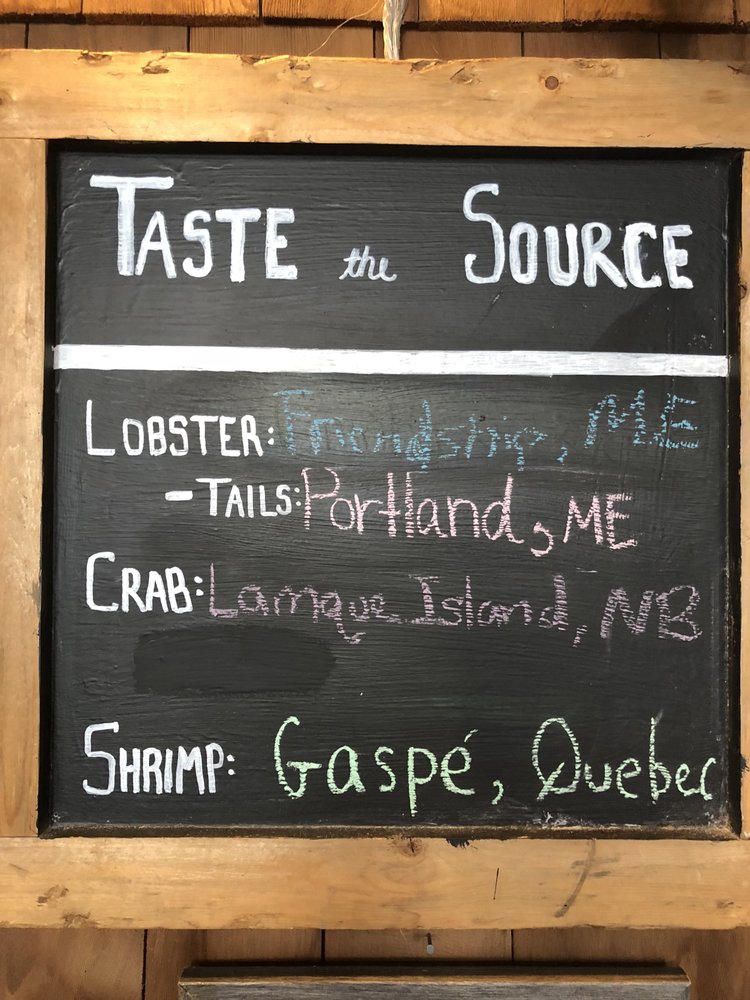 TASTE the SOURCE
LOBSTER: Friendship, ME
-TAILS: Portland, ME
CRAB: Lamque Island, NB
SHRIMP: Gaspé, Quebec